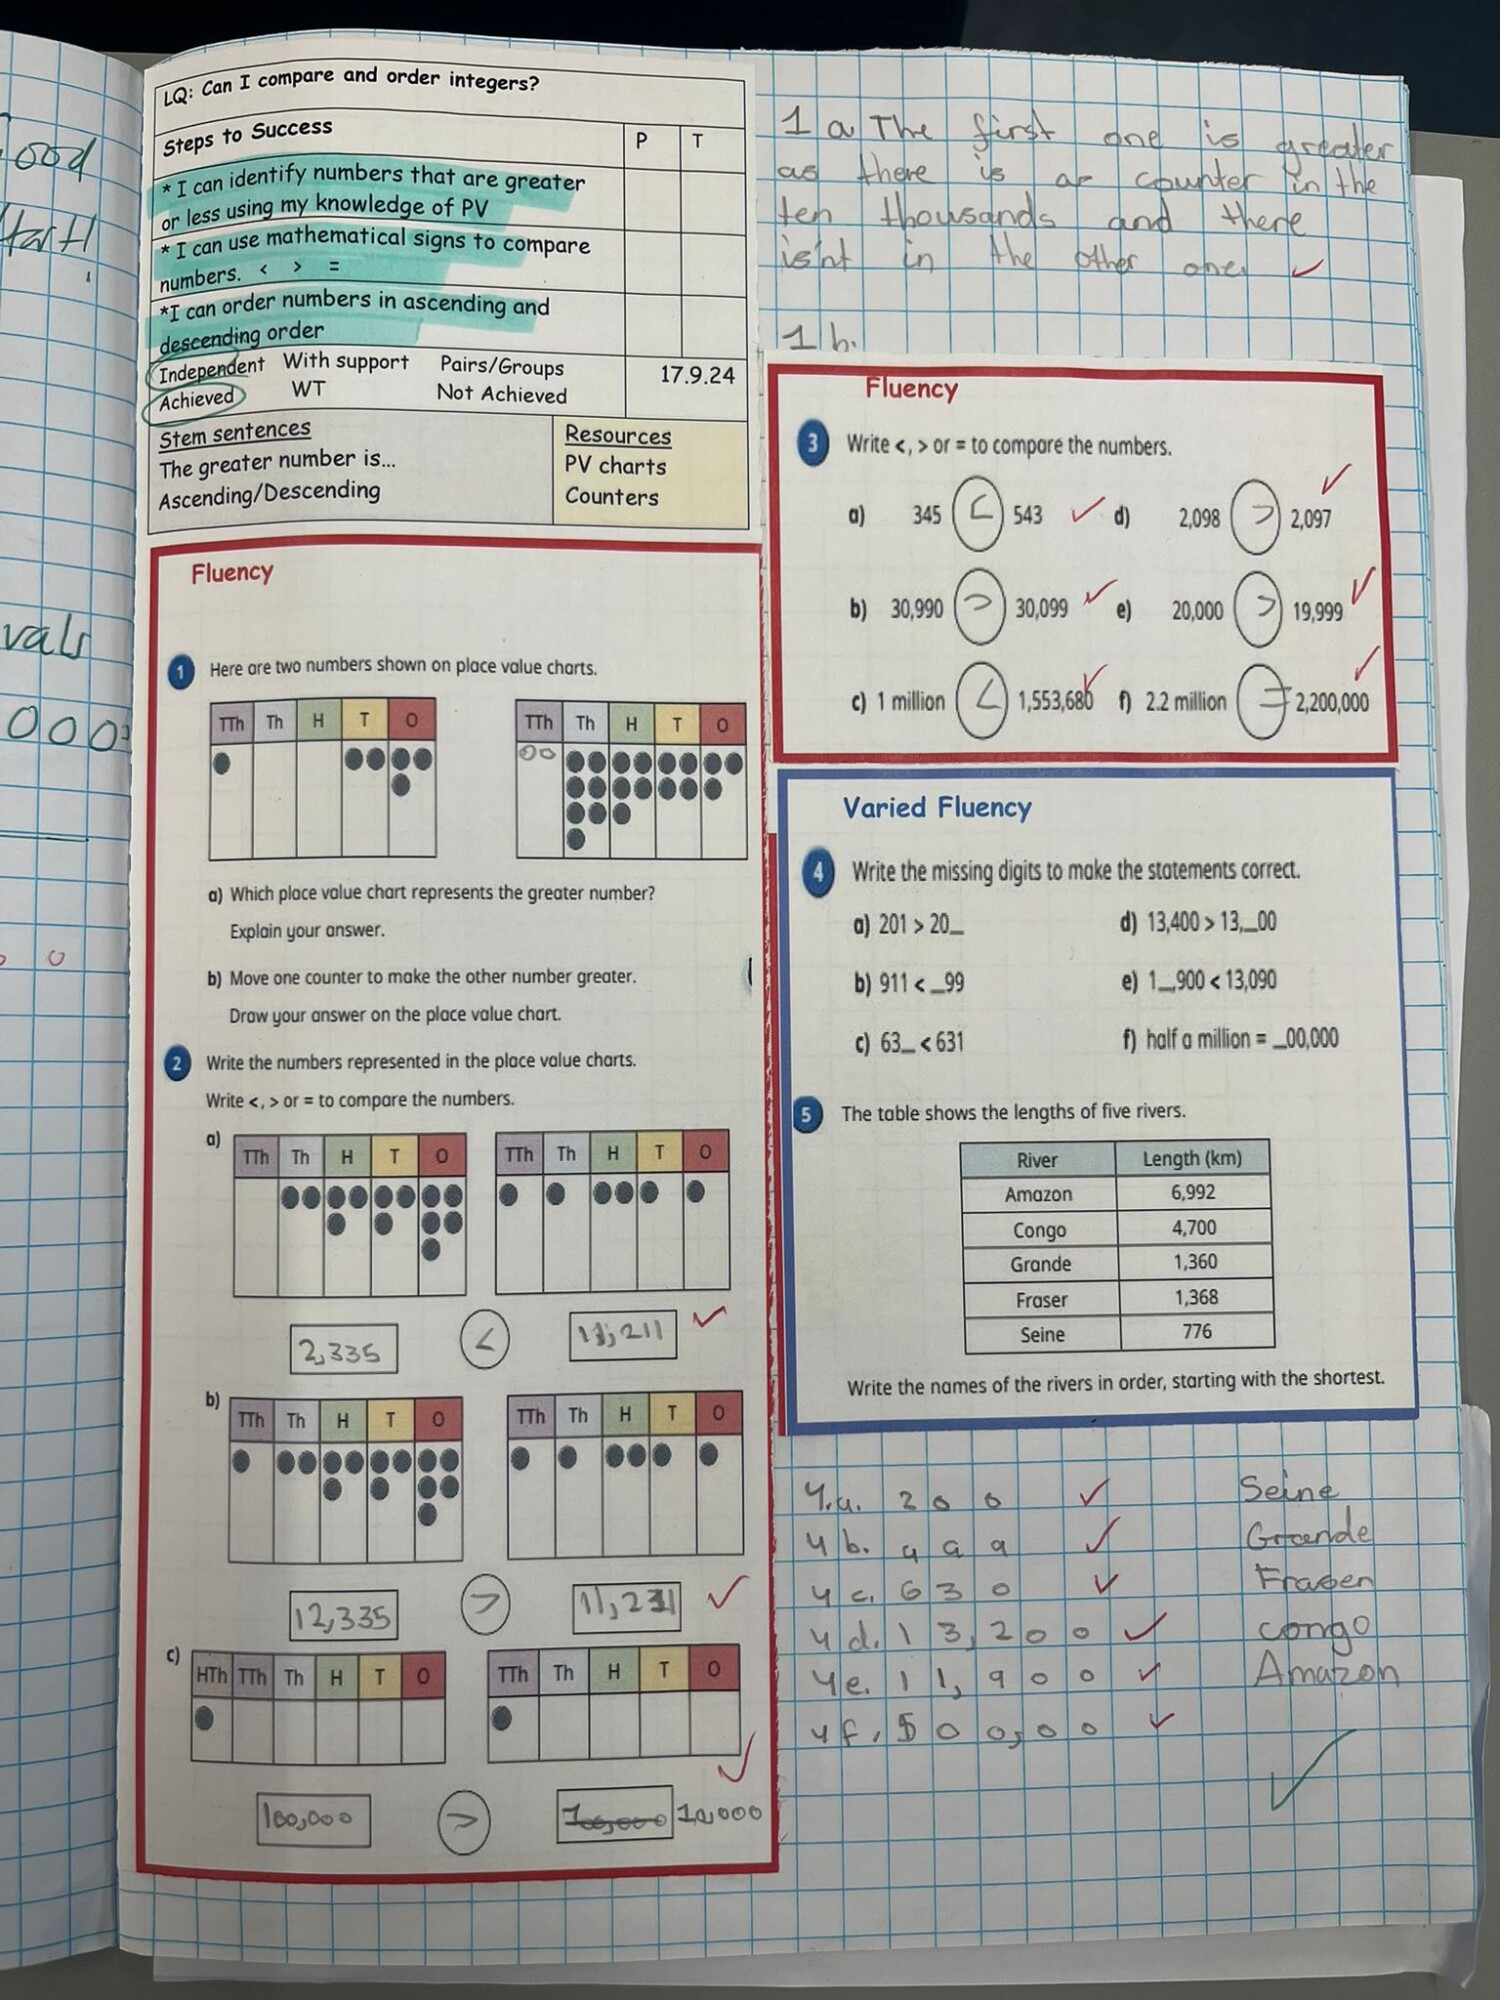 ood
tart!
vals
000
LQ: Can I compare and order integers?
Steps to Success P T
* I can identify numbers that are greater
or less using my knowledge of PV
* I can use mathematical signs to compare
numbers. < > =
*I can order numbers in ascending and
descending order
Independent With support Pairs/Groups 17.9.24
Achieved WT Not Achieved
Stem sentences
The greater number is...
Ascending/Descending
Resources
PV charts
Counters
Fluency
1 Here are two numbers shown on place value charts.
TTh Th H T O
TTh Th H T O
a) Which place value chart represents the greater number?
Explain your answer.
b) Move one counter to make the other number greater.
Draw your answer on the place value chart.
2 Write the numbers represented in the place value charts.
Write <, > or = to compare the numbers.
a) TTh Th H T O
TTh Th H T O
2,335 < 11,211
b) TTh Th H T O
TTh Th H T O
12,335 > 11,211
c) HTh TTh Th H T O
TTh Th H T O
100,000 > 100,000 10,000
1 a The first one is greater
as there is a counter in the
ten thousands and there
is'nt in the other one.
1 b.
Fluency
3 Write <, > or = to compare the numbers.
a) 345 < 543 d) 2,098 > 2,097
b) 30,990 > 30,099 e) 20,000 > 19,999
c) 1 million < 1,553,680 f) 2.2 million = 2,200,000
Varied Fluency
4 Write the missing digits to make the statements correct.
a) 201 > 20_ d) 13,400 > 13,_00
b) 911 < _99 e) 1_,900 < 13,090
c) 63_ < 631 f) half a million = _00,000
5 The table shows the lengths of five rivers.
River Length (km)
Amazon 6,992
Congo 4,700
Grande 1,360
Fraser 1,368
Seine 776
Write the names of the rivers in order, starting with the shortest.
4.a. 200
4 b. 999
4 c. 630
4 d. 13,200
4 e. 11,900
4 f. 500,00
Seine
Grande
Fraser
congo
Amazon